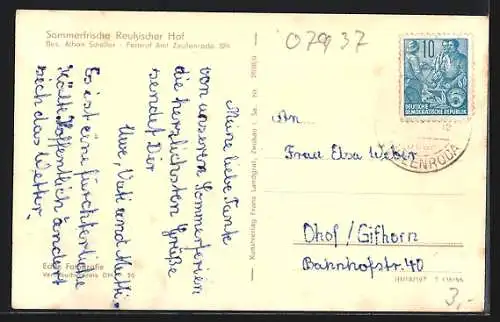 Sommerfrische Reußischer Hof
Bes. Alban Scheffer - Fernruf Amt Zeulenroda
07937
Meine liebe Tante
von unseren Sommerferien
die herzlichsten Grüße
sendet Dir
Uwe, Vati und Mutti.
Es ist eine fürchterliche
Kälte. Hoffentlich ändert
sich das Wetter!
Echte Fotografie
Kunstverlag Franz Landgraf, Zwickau i. Sa.
10
DEUTSCHE
DEMOKRATISCHE REPUBLIK
ZEULENRODA
An
Frau Elsa Weber
Ohof / Gifhorn
Bahnhofstr. 40
3,-